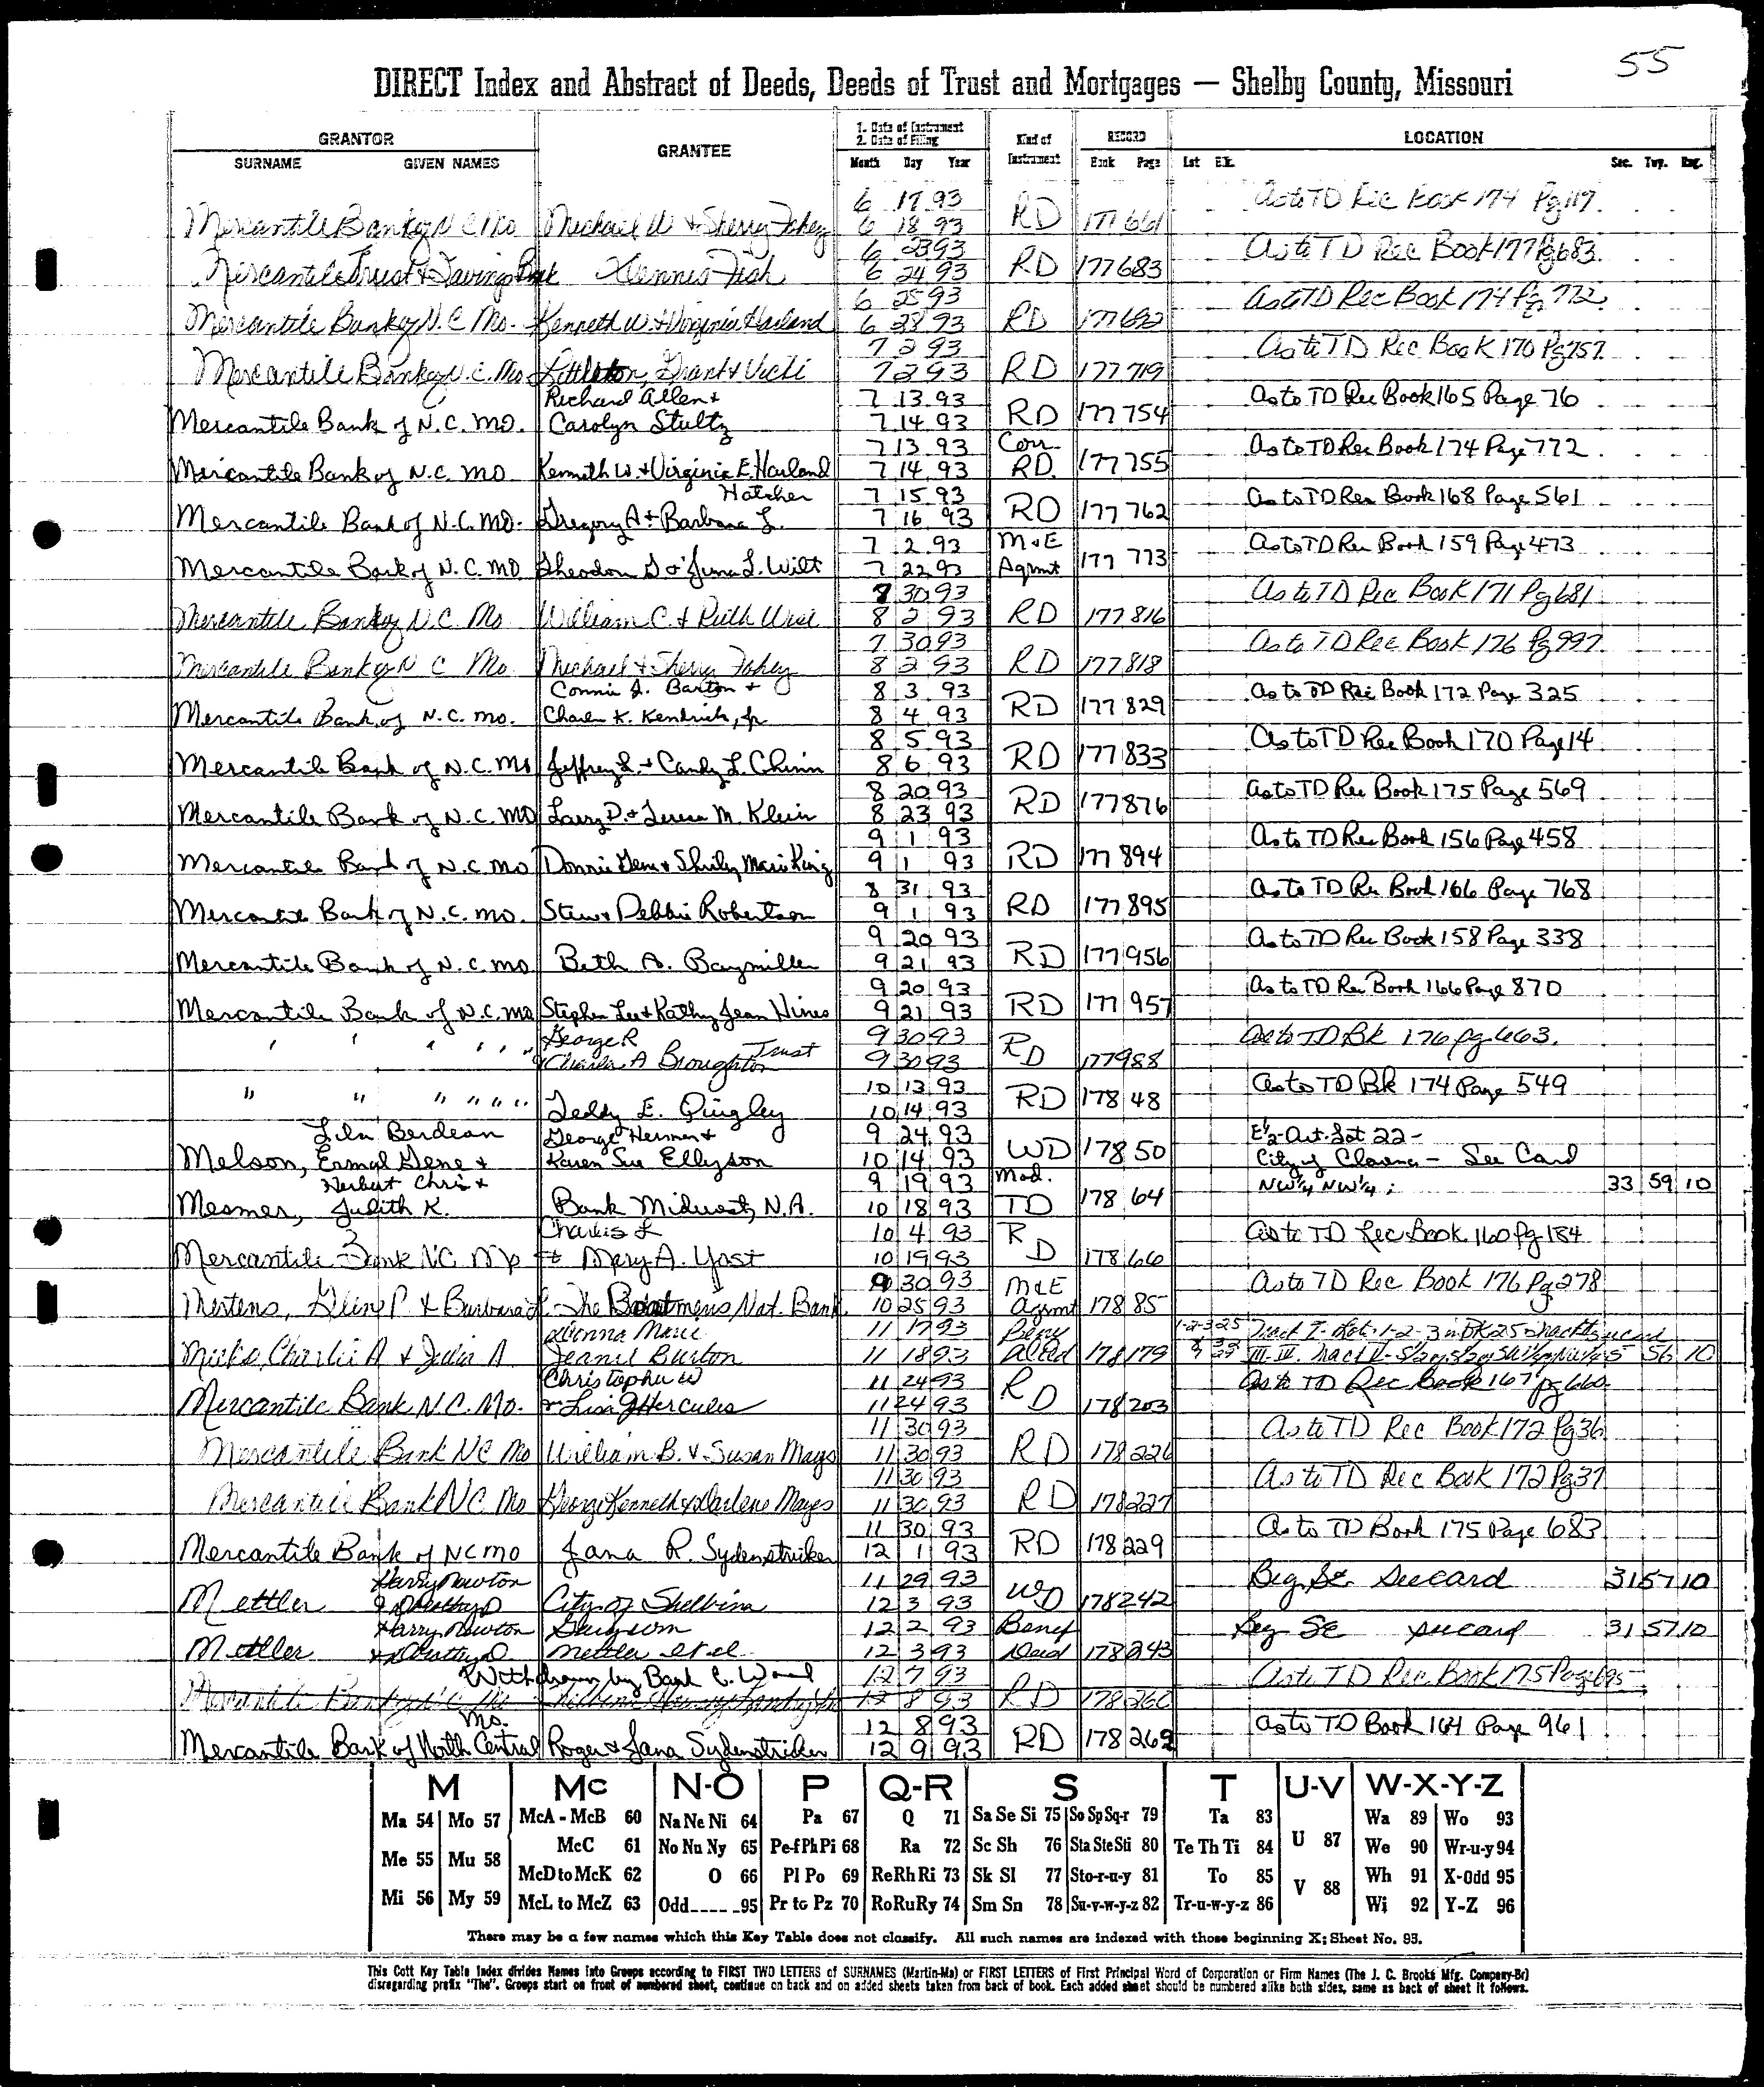 55
DIRECT Index and Abstract of Deeds, Deeds of Trust and Mortgages — Shelby County, Missouri
GRANTOR GRANTEE 1. Date of Instrument 2. Date of Filing Kind of Instrument RECORD LOCATION
SURNAME GIVEN NAMES Month Day Year Book Page Lot Blk. Sec. Twp. Rng.
6 17 93 As to TD Rec Book 174 Pg 117
Mercantile Bank of N C Mo Michael W & Sherry Fahey 6 18 93 RD 177 661
6 23 93 As to TD Rec Book 177 Pg 683
Mercantile Trust & Savings Bank Dennis Fish 6 24 93 RD 177 683
6 25 93 As to TD Rec Book 174 Pg 772
Mercantile Bank of N.C Mo. Kenneth W. & Virginia Harland 6 28 93 RD 177 692
7 2 93 As to TD Rec Book 170 Pg 757
Mercantile Bank of N.C. Mo Littleton, Grant & Vicki 7 2 93 RD 177 719
Richard Allen & 7 13 93 As to TD Rec Book 165 Page 76
Mercantile Bank of N.C. MO. Carolyn Stultz 7 14 93 RD 177 754
7 13 93 Corr. As to TD Rec Book 174 Page 772
Mercantile Bank of N.C. MO Kenneth W. & Virginia E. Harland 7 14 93 RD. 177 755
Hatcher 7 15 93 As to TD Rec Book 168 Page 561
Mercantile Bank of N.C. MO. Gregory A & Barbara L. 7 16 93 RD 177 762
7 2 93 M&E As to TD Rec Book 159 Page 473
Mercantile Bank of N.C. MO Theodore D & June L. Wilt 7 22 93 Agrmt 177 773
8 30 93 As to TD Rec Book 171 Pg 681
Mercantile Bank of N.C Mo William C. & Ruth West 8 2 93 RD 177 816
7 30 93 As to TD Rec Book 176 Pg 997
Mercantile Bank of N C Mo Michael & Sherry Fahey 8 2 93 RD 177 818
Connie J. Barton & 8 3 93 As to TD Rec Book 172 Page 325
Mercantile Bank of N.C. Mo. Charles K. Kendrick, Jr 8 4 93 RD 177 829
8 5 93 As to TD Rec Book 170 Page 14
Mercantile Bank of N.C. Mo Jeffrey L. & Candy L. Chinn 8 6 93 RD 177 833
8 20 93 As to TD Rec Book 175 Page 569
Mercantile Bank of N.C. MO Larry D. & Teresa M. Klein 8 23 93 RD 177 876
9 1 93 As to TD Rec Book 156 Page 458
Mercantile Bank of N.C. MO Donnie Gene & Shirley Marie King 9 1 93 RD 177 894
8 31 93 As to TD Rec Book 166 Page 768
Mercantile Bank of N.C. MO. Steve & Debbie Robertson 9 1 93 RD 177 895
9 20 93 As to TD Rec Book 158 Page 338
Mercantile Bank of N.C. MO Beth A. Baymiller 9 21 93 RD 177 956
9 20 93 As to TD Rec Book 166 Page 870
Mercantile Bank of N.C. MO Stephen Lee & Kathy Jean Hines 9 21 93 RD 177 957
George R 9 30 93 As to TD Bk 176 pg 663.
" " " " " " & Charles A Broughton Trust 9 30 93 RD 177 988
10 13 93 As to TD Bk 174 Page 549
" " " " " " Teddy E. Quigley 10 14 93 RD 178 48
Lila Berdean George Herman & 9 24 93 E½ Out. Lot 22 -
Melson, Ermal Gene & Karen Sue Ellyson 10 14 93 WD 178 50 City of Clarence - See Card
Herbert Chris & 9 19 93 Mod. NW¼ NW¼; 33 59 10
Mesmer, Judith K. Bank Midwest, N.A. 10 18 93 TD 178 64
Charles L 10 4 93 As to TD Rec Book 160 pg 184
Mercantile Bank NC Mo & Mary A. Yost 10 19 93 RD 178 66
9 30 93 M&E As to TD Rec Book 176 Pg 278
Mertens, Glenn P. & Barbara L The Boatmens Nat. Bank. 10 25 93 Agrmt 178 85
Donna Marie 11 17 93 Beny 1-2-3 25 Tract I- Lots 1-2-3 in BK 25 Shacklts see card
Meeks, Charlie A & Julia A Jeanie Burton 11 18 93 Deed 178 179 III-IV. Tract II- 5 56 10
Christopher W 11 24 93 As to TD Rec Book 167 pg 660
Mercantile Bank N.C. Mo. & Lisa J Hercules 11 24 93 RD 178 203
11 30 93 As to TD Rec Book 172 Pg 36
Mercantile Bank NC Mo William B. & Susan Mays 11 30 93 RD 178 226
11 30 93 As to TD Rec Book 172 Pg 37
Mercantile Bank NC Mo George Kenneth & Darlene Mayes 11 30 93 RD 178 227
11 30 93 As to TD Book 175 Page 683
Mercantile Bank of NC MO Jana R. Sydenstricker 12 1 93 RD 178 229
Harry Newton 11 29 93 Beg. SE See card 31 57 10
Mettler & Dorothy D City of Shelbina 12 3 93 WD 178 242
Harry Newton Garyson 12 2 93 Benef Beg SE see card 31 57 10
Mettler & Dorothy D. Mettler et al 12 3 93 Deed 178 243
Withdrawn by Bank C. Wood 12 7 93 As to TD Rec. Book 175 Page 695
Mercantile Bank of N C Mo 12 8 93 RD 178 260
Mo. 12 8 93 As to TD Book 164 Page 961
Mercantile Bank of North Central Roger & Jana Sydenstricker 12 9 93 RD 178 262
M Mc N-O P Q-R S T U-V W-X-Y-Z
Ma 54 Mo 57 McA - McB 60 Na Ne Ni 64 Pa 67 Q 71 Sa Se Si 75 So Sp Sq-r 79 Ta 83 U 87 Wa 89 Wo 93
Me 55 Mu 58 McC 61 No Nu Ny 65 Pe-f Ph Pi 68 Ra 72 Sc Sh 76 Sta Ste Sti 80 Te Th Ti 84 We 90 Wr-u-y 94
McD to McK 62 O 66 Pl Po 69 Re Rh Ri 73 Sk Sl 77 Sto-r-u-y 81 To 85 V 88 Wh 91 X-Odd 95
Mi 56 My 59 McL to McZ 63 Odd 95 Pr to Pz 70 Ro Ru Ry 74 Sm Sn 78 Su-v-w-y-z 82 Tr-u-w-y-z 86 Wi 92 Y-Z 96
There may be a few names which this Key Table does not classify. All such names are indexed with those beginning X; Sheet No. 95.
This Cott Key Table Index divides Names into Groups according to FIRST TWO LETTERS of SURNAMES (Martin-Ma) or FIRST LETTERS of First Principal Word of Corporation or Firm Names (The J. C. Brooks Mfg. Company-Br)
disregarding prefix "The". Groups start on front of numbered sheet, continue on back and on added sheets taken from back of book. Each added sheet should be numbered alike both sides, same as back of sheet it follows.